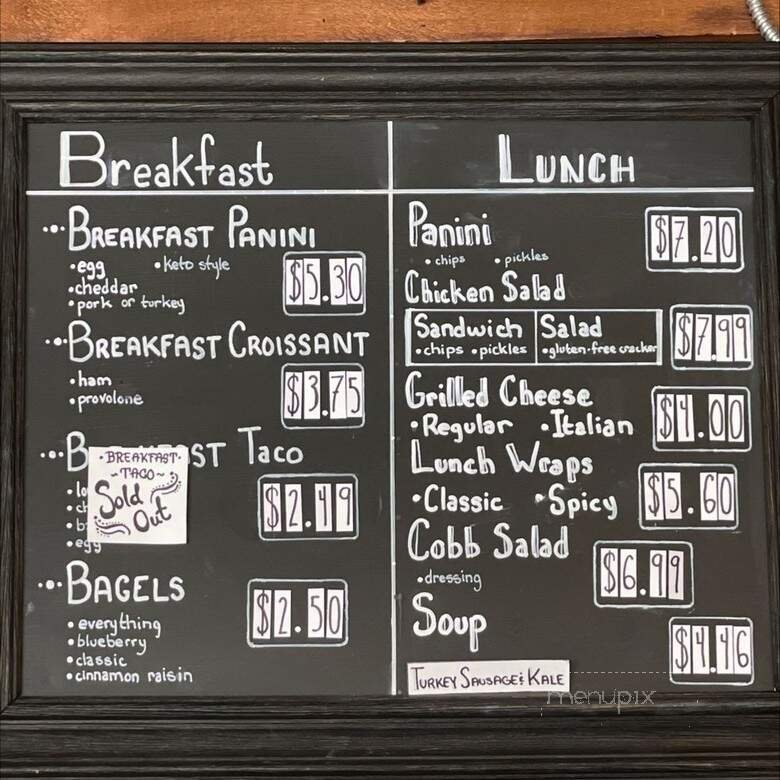 Breakfast
BREAKFAST PANINI
•egg •keto style
•cheddar
•pork or turkey
$5.30
BREAKFAST CROISSANT
•ham
•provolone
$3.75
Taco
•BREAKFAST•
~TACO~
Sold
Out
•egg
$2.49
BAGELS
•everything
•blueberry
•classic
•cinnamon raisin
$2.50
LUNCH
Panini
•chips •pickles
$7.20
Chicken Salad
Sandwich Salad
•chips •pickles •gluten-free cracker
$7.99
Grilled Cheese
•Regular •Italian
$4.00
Lunch Wraps
•Classic •Spicy
$5.60
Cobb Salad
•dressing
$6.99
Soup
$4.46
TURKEY SAUSAGE & KALE
menupix